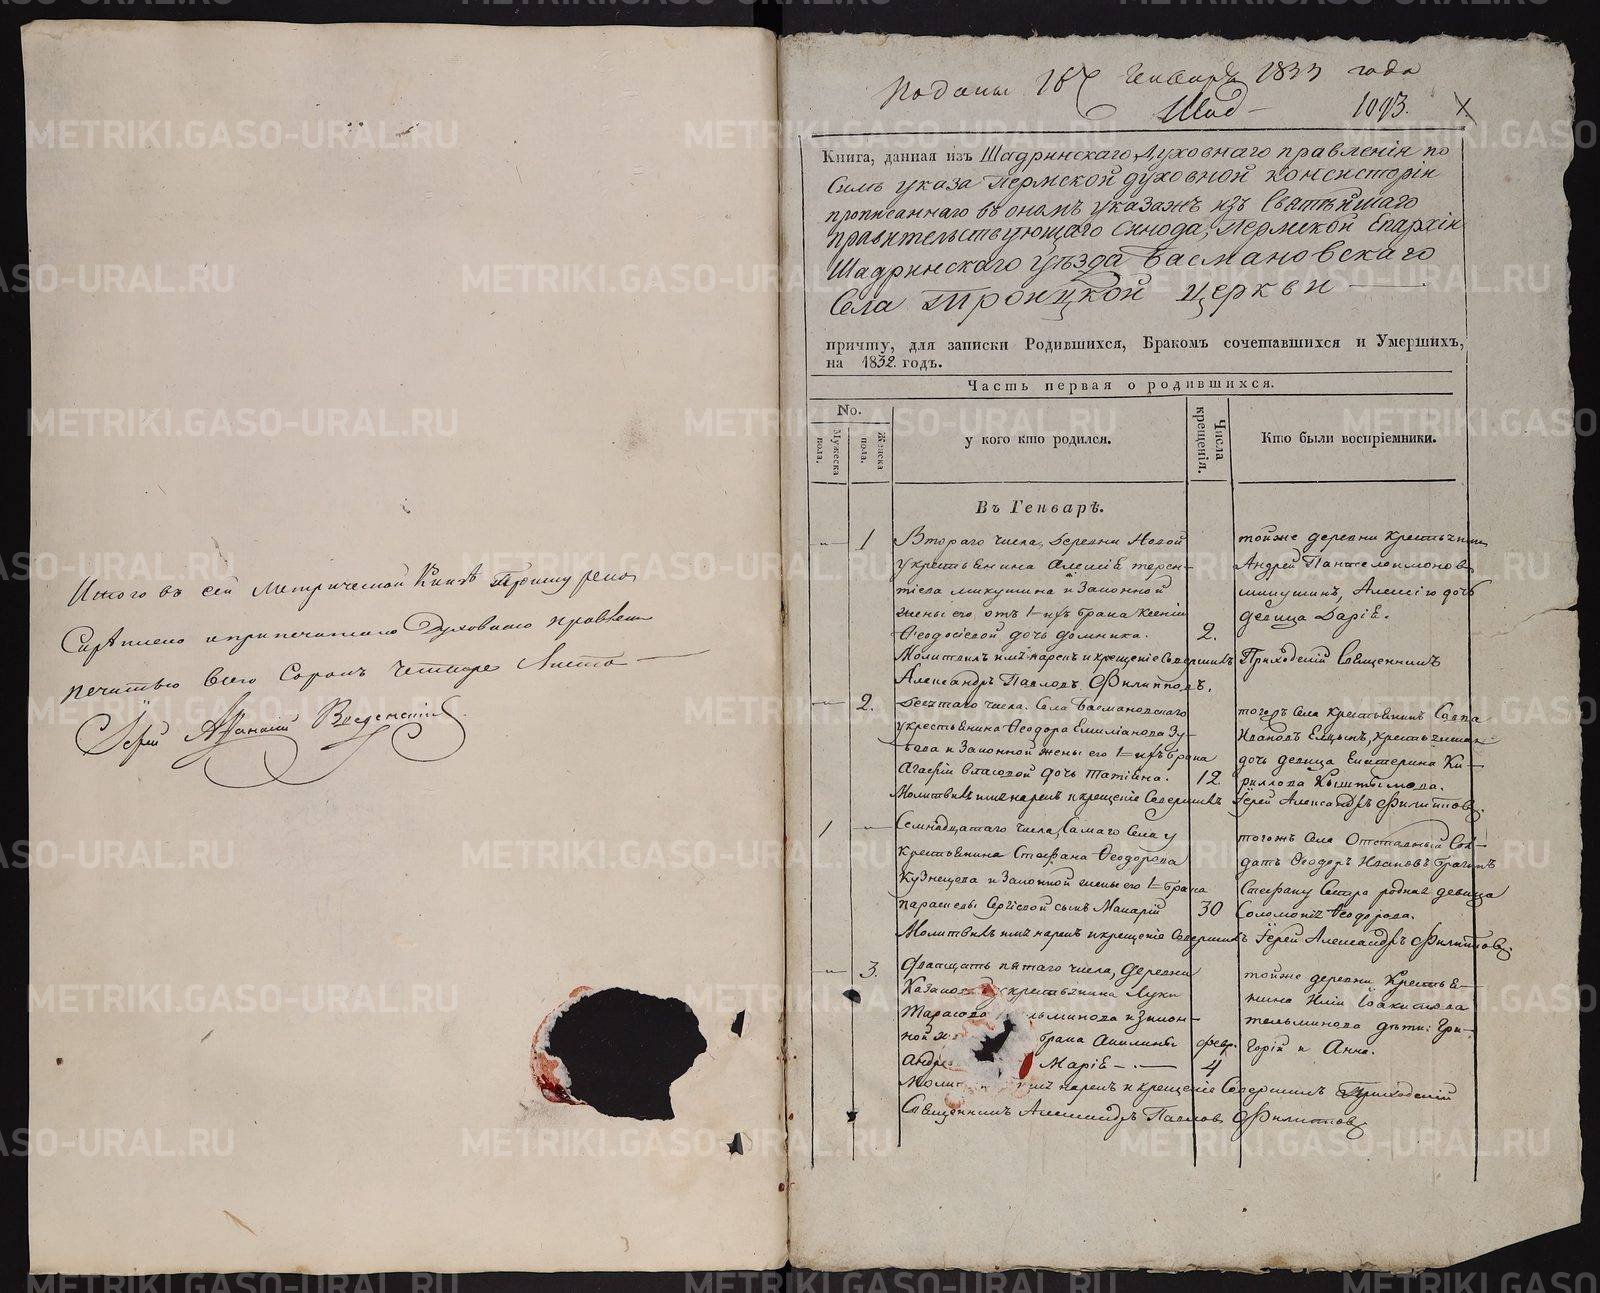 Итого въ сей метрической Книгѣ
Скрѣплено и припечатано Духовнаго правленія
печатью всего Сорокъ четыре листа
Іерей Афанасій Введенскій
Подана 16 Генваря 1833 года
Шад 1093.
Книга, данная изъ Шадринскаго Духовнаго правленія по
Силѣ указа Пермской духовной консисторіи
прописаннаго въ ономъ указажъ изъ Святѣйшаго
правительствующаго Синода, Пермской Епархіи
Шадринскаго уѣзда Басмановскаго
Села Троицкой церкви
причту, для записки Родившихся, Бракомъ сочетавшихся и Умершихъ,
на 1832. годъ.
Часть первая о родившихся.
No.
Мужеска пола.
Женска пола.
у кого кто родился.
Числа крещенія.
Кто были воспріемники.
Въ Генварѣ.
1 Втораго числа, деревни Новой
у крестьянина Алексіе терен-
тіева микушина и Законной
жены его отъ 1 брака Ксеніи
Ѳеодосіевой дочь домника. 2.
тойже деревни крестьянинъ
Андрей Пантелеимоновъ
микушинъ, Алексію дочь
девица Дарія.
Молитвилъ имя нарекъ и крещеніе Совершилъ Приходскій Священникъ
Александръ Павловъ Филипповъ.
2. Десятаго числа. Села Басмановскаго
у крестьянина Ѳеодора Емиліанова Зу-
ева и Законной жены его 1 брака
Агафіи Власовой дочь Татіяна. 12
тогожъ Села крестьянинъ Савва
Ивановъ Елцынъ, крестьянская
дочь девица Екатерина Ки-
риллова Кыштымова.
Молитвилъ имя нарекъ и крещеніе Совершилъ Іерей Александръ Филипповъ.
1 Семнадцатаго числа, Самаго Села у
крестьянина Стефана Ѳеодорова
Кузнецова и Законной жены его 1 брака
параскевы Сергіевой сынъ Макарій 30
тогожъ Села Отставный Сол-
датъ Ѳеодоръ Ивановъ
Стефану Сестра родная девица
Соломонія Ѳеодорова.
Молитвилъ имя нарекъ и крещеніе Совершилъ Іерей Александръ Филипповъ.
3. Дватцать пятаго числа, Деревни
у крестьянина Луки
Тарасова и Закон-
ной брака Акилины февр.
Марія 4
тойже деревни Крестья-
нина Иліи Іоакимова
тельминова дѣти: Гри-
горій и Анна.
имя нарекъ и крещеніе Совершилъ Приходскій
Священникъ Александръ Павловъ Филипповъ
METRIKI.GASO-URAL.RU